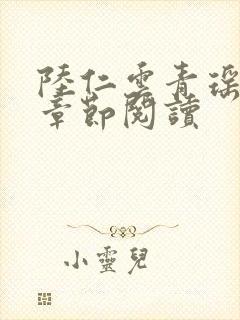 陸仁雲青瑤
章節閱讀
小靈兒